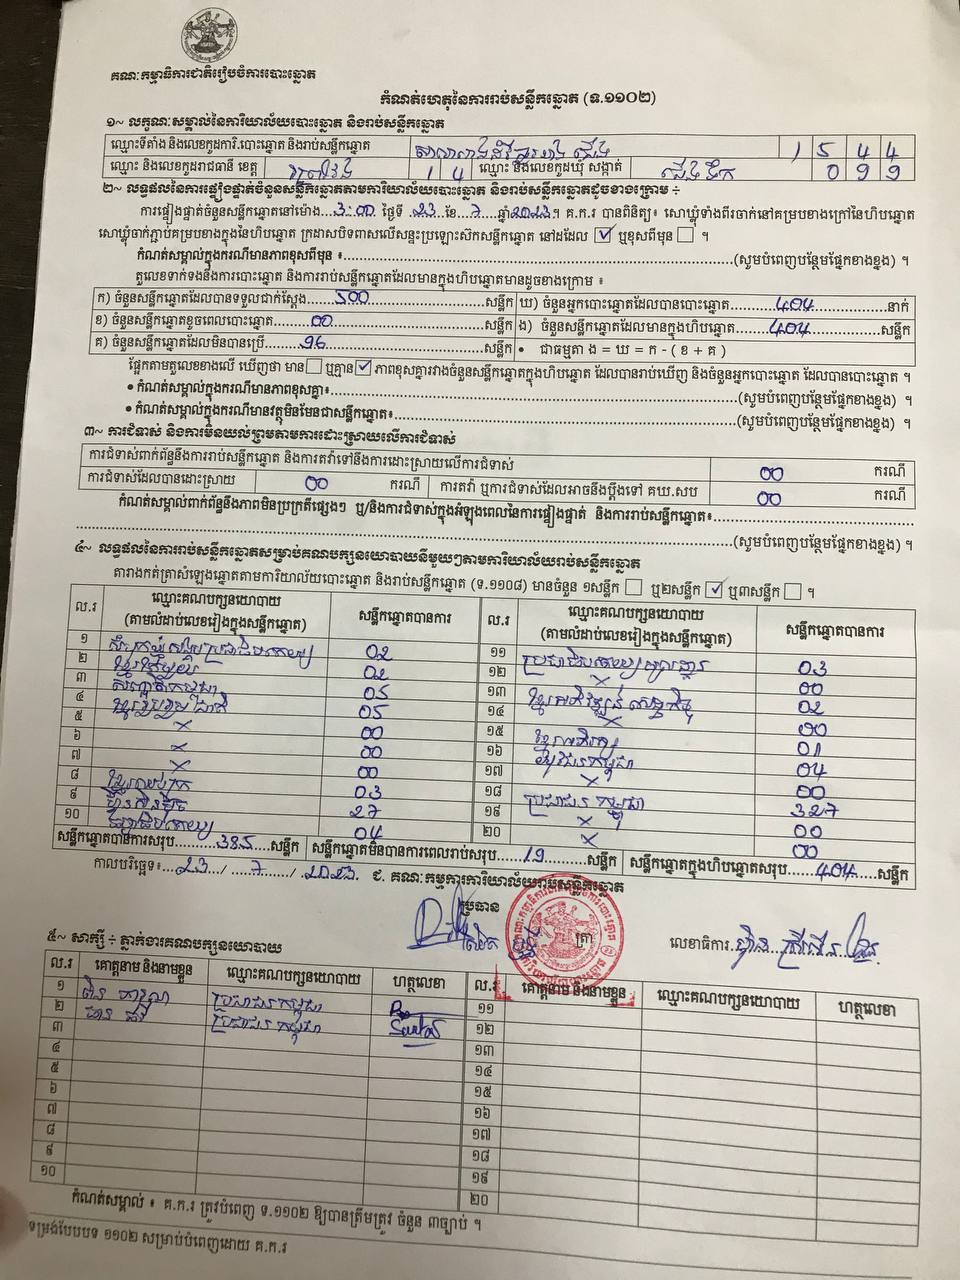 គណៈកម្មាធិការជាតិរៀបចំការបោះឆ្នោត
កំណត់ហេតុនៃការរាប់សន្លឹកឆ្នោត (ទ.១១០២)
១~ លក្ខណៈសម្គាល់នៃការិយាល័យបោះឆ្នោត និងរាប់សន្លឹកឆ្នោត
ឈ្មោះទីតាំង និងលេខកូដការិ.បោះឆ្នោត និងរាប់សន្លឹកឆ្នោត 1 5 4 4
ឈ្មោះ និងលេខកូដរាជធានី ខេត្ត ព្រៃវែង 1 4 ឈ្មោះ និងលេខកូដឃុំ សង្កាត់ ជើងទឹក 0 9 9
២~ លទ្ធផលនៃការផ្ទៀងផ្ទាត់ចំនួនសន្លឹកឆ្នោតតាមការិយាល័យបោះឆ្នោត និងរាប់សន្លឹកឆ្នោតដូចខាងក្រោម ÷
ការផ្ទៀងផ្ទាត់ចំនួនសន្លឹកឆ្នោតនៅម៉ោង 3:00 ថ្ងៃទី 23 ខែ 7 ឆ្នាំ 2023។ គ.ក.រ បានពិនិត្យ៖ សោឃ្លុំទាំងពីរចាក់នៅគម្របខាងក្រៅនៃហិបឆ្នោត
សោឃ្លុំចាក់ភ្ជាប់គម្របខាងក្នុងនៃហិបឆ្នោត ក្រដាសបិទពាសលើសន្ទះប្រឡោះស៊កសន្លឹកឆ្នោត នៅដដែល ☑ ឬខុសពីមុន ☐ ។
កំណត់សម្គាល់ក្នុងករណីមានភាពខុសពីមុន ៖ (សូមបំពេញបន្ថែមផ្នែកខាងខ្នង) ។
តួលេខទាក់ទងនឹងការបោះឆ្នោត និងការរាប់សន្លឹកឆ្នោតដែលមានក្នុងហិបឆ្នោតមានដូចខាងក្រោម ៖
ក) ចំនួនសន្លឹកឆ្នោតដែលបានទទួលជាក់ស្តែង 500 សន្លឹក ឃ) ចំនួនអ្នកបោះឆ្នោតដែលបានបោះឆ្នោត 404 នាក់
ខ) ចំនួនសន្លឹកឆ្នោតខូចពេលបោះឆ្នោត 00 សន្លឹក ង) ចំនួនសន្លឹកឆ្នោតដែលមានក្នុងហិបឆ្នោត 404 សន្លឹក
គ) ចំនួនសន្លឹកឆ្នោតដែលមិនបានប្រើ 96 សន្លឹក • ជាធម្មតា ង = ឃ = ក - ( ខ + គ )
ផ្អែកតាមតួលេខខាងលើ ឃើញថា មាន ☐ ឬគ្មាន ☑ ភាពខុសគ្នារវាងចំនួនសន្លឹកឆ្នោតក្នុងហិបឆ្នោត ដែលបានរាប់ឃើញ និងចំនួនអ្នកបោះឆ្នោត ដែលបានបោះឆ្នោត ។
• កំណត់សម្គាល់ក្នុងករណីមានភាពខុសគ្នា៖ (សូមបំពេញបន្ថែមផ្នែកខាងខ្នង) ។
• កំណត់សម្គាល់ក្នុងករណីមានវត្ថុមិនមែនជាសន្លឹកឆ្នោត៖ (សូមបំពេញបន្ថែមផ្នែកខាងខ្នង) ។
៣~ ការជំទាស់ និងការមិនយល់ព្រមតាមការដោះស្រាយលើការជំទាស់
ការជំទាស់ពាក់ព័ន្ធនឹងការរាប់សន្លឹកឆ្នោត និងការតវ៉ាទៅនឹងការដោះស្រាយលើការជំទាស់ 00 ករណី
ការជំទាស់ដែលបានដោះស្រាយ 00 ករណី ការតវ៉ា ឬការជំទាស់ដែលអាចនឹងប្តឹងទៅ គឃ.សប 00 ករណី
កំណត់សម្គាល់ពាក់ព័ន្ធនឹងភាពមិនប្រក្រតីផ្សេងៗ ឬ/និងការជំទាស់ក្នុងអំឡុងពេលនៃការផ្ទៀងផ្ទាត់ និងការរាប់សន្លឹកឆ្នោត៖
(សូមបំពេញបន្ថែមផ្នែកខាងខ្នង) ។
៤~ លទ្ធផលនៃការរាប់សន្លឹកឆ្នោតសម្រាប់គណបក្សនយោបាយនីមួយៗតាមការិយាល័យរាប់សន្លឹកឆ្នោត
តារាងកត់ត្រាសំឡេងឆ្នោតតាមការិយាល័យបោះឆ្នោត និងរាប់សន្លឹកឆ្នោត (ទ.១១០៨) មានចំនួន ១សន្លឹក ☐ ឬ២សន្លឹក ☑ ឬ៣សន្លឹក ☐ ។
ល.រ ឈ្មោះគណបក្សនយោបាយ (តាមលំដាប់លេខរៀងក្នុងសន្លឹកឆ្នោត) សន្លឹកឆ្នោតបានការ ល.រ ឈ្មោះគណបក្សនយោបាយ (តាមលំដាប់លេខរៀងក្នុងសន្លឹកឆ្នោត) សន្លឹកឆ្នោតបានការ
១ 02 ១១ 03
២ 02 ១២ × 00
៣ 05 ១៣ 02
៤ 05 ១៤ ×
៥ × 00 ១៥ 01
៦ × 00 ១៦ 04
៧ × 00 ១៧ × 00
៨ 03 ១៨ ប្រជាជនកម្ពុជា 327
៩ 27 ១៩ × 00
១០ 04 ២០ × 00
សន្លឹកឆ្នោតបានការសរុប 385 សន្លឹក សន្លឹកឆ្នោតមិនបានការពេលរាប់សរុប 19 សន្លឹក សន្លឹកឆ្នោតក្នុងហិបឆ្នោតសរុប 404 សន្លឹក
កាលបរិច្ឆេទ៖ 23 / 7 / 2023 ជ. គណៈកម្មការការិយាល័យរាប់សន្លឹកឆ្នោត
ប្រធាន ត្រា លេខាធិការ
៥~ សាក្សី ÷ ភ្នាក់ងារគណបក្សនយោបាយ
ល.រ គោត្តនាម និងនាមខ្លួន ឈ្មោះគណបក្សនយោបាយ ហត្ថលេខា ល.រ គោត្តនាម និងនាមខ្លួន ឈ្មោះគណបក្សនយោបាយ ហត្ថលេខា
១ ប្រជាជនកម្ពុជា ១១
២ ប្រជាជនកម្ពុជា ១២
៣ ១៣
៤ ១៤
៥ ១៥
៦ ១៦
៧ ១៧
៨ ១៨
៩ ១៩
១០ ២០
កំណត់សម្គាល់ ៖ គ.ក.រ ត្រូវបំពេញ ទ.១១០២ ឱ្យបានត្រឹមត្រូវ ចំនួន ៣ច្បាប់ ។
ទម្រង់បែបបទ ១១០២ សម្រាប់បំពេញដោយ គ.ក.រ